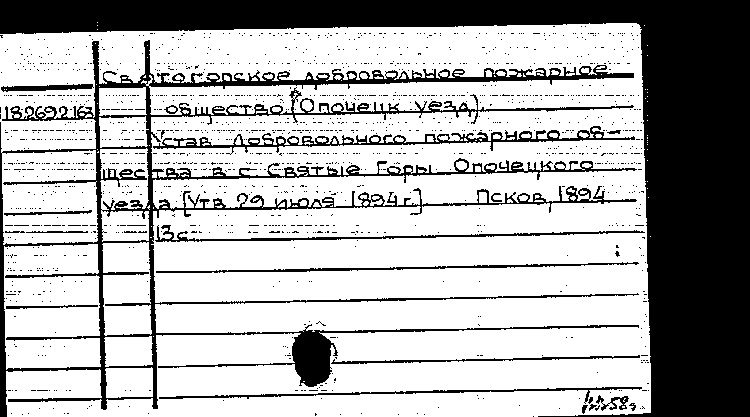 Святогорское добровольное пожарное
18.269.2.163 общество (Опочецк уезд)
Устав Добровольного пожарного об-
щества в с Святые Горы Опочецкого
уезда [Утв 29 июля 1894 г.] Псков, 1894
13 с